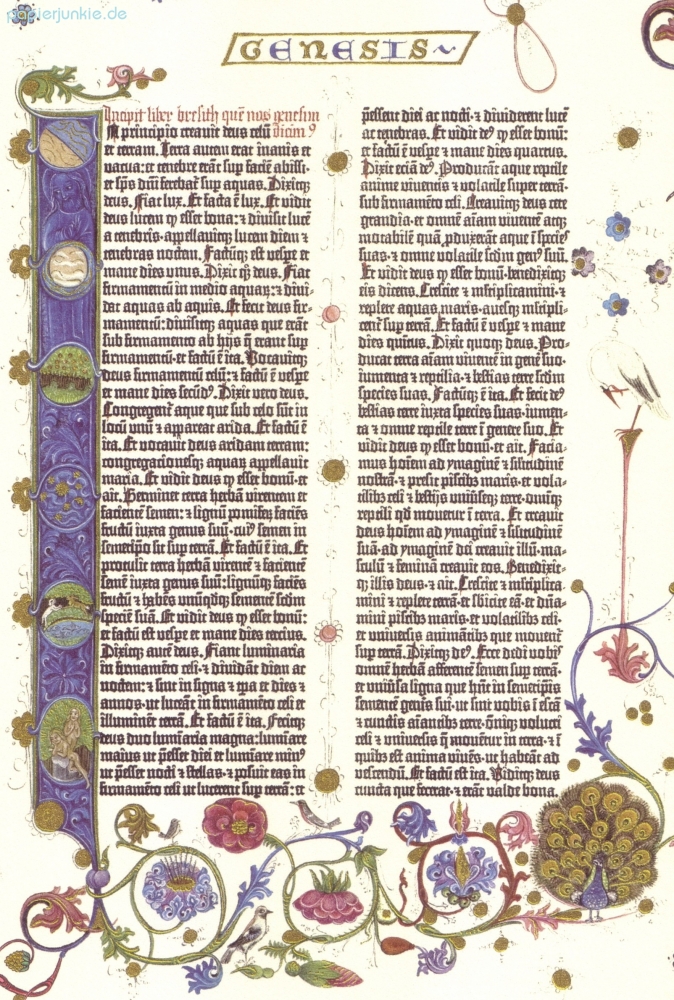 papierjunkie.de
GENESIS
Incipit liber bresith quē nos genesim
In principio creavit deus celū dicim⁹
et terram. Terra autem erat inanis et
vacua: et tenebre erāt sup faciē abissi:
et spūs dn̄i ferebat͛ sup aquas. Dixitq;
deus. Fiat lux. Et facta ē lux. Et vidit
deus lucem ꝙ esset bona: ⁊ divisit lucē
a tenebris·appellavitq; lucem diem ⁊
tenebras noctem. Factūq; est vespe et
mane dies vnus. Dixit qꝫ deus. Fiat
firmamentū in medio aquaꝝ: ⁊ divi-
dat aquas ab aquis. Et fecit deus fir-
mamentū: divisitq; aquas que erāt
sub firmamento ab hijs q̄ erant sup
firmamentū·et factū ē ita. Vocavitq;
deus firmamentū celū: ⁊ factū ē vespe
et mane dies secūd⁹. Dixit vero deus.
Congregent͛ aque que sub celo sūt in
locū vnū ⁊ appareat arida. Et factū ē
ita. Et vocavit deus aridam terram:
congregacionesq; aquaꝝ appellavit
maria. Et vidit deus ꝙ esset bonū·et
ait. Germinet terra herbā virentem et
facientē semen: ⁊ lignū pomifeꝝ faciēs
fructū iuxta genus suū·cui⁹ semen in
semetipo sit sup terrā. Et factū ē ita. Et
protulit terra herbā virentē ⁊ facientē
semē iuxta genus suū: lignūq; faciēs
fructū ⁊ habēs vnūqdq; sementē scdm
speciē suā. Et vidit deus ꝙ esset bonū:
et factū est vespe et mane dies tercius.
Dixitq; autē deus. Fiant luminaria
in firmamēto celi·⁊ dividāt diem ac
noctem: ⁊ sint in signa ⁊ tpa et dies ⁊
annos·ut luceāt in firmamēto celi et
illuminēt terrā. Et factū ē ita. Fecitq;
deus duo luminaria magna: lumiare
maius ut p̄esset diei et lumiare min⁹
ut p̄esset nocti ⁊ stellas·⁊ posuit eas in
firmamēto celi ut lucerent sup terrā: et
p̄essent diei ac nocti·⁊ dividerent lucē
ac tenebras. Et vidit de⁹ ꝙ esset bonū:
et factū ē vespe ⁊ mane dies quartus.
Dixit eciā de⁹. Producāt aque reptile
anime viventis ⁊ volatile super terrā·
sub firmamēto celi. Creavitq; deus cete
grandia·et omnē aīam viventē atq;
motabilē quā p̱duxerāt aque ī species
suas·⁊ omne volatile scdm gen⁹ suū.
Et vidit deus ꝙ esset bonū·benedixitq;
eis dicens. Crescite ⁊ m̄ltiplicamini·⁊
replete aquas maris·avesq; m̄ltipli-
cent͛ sup terrā. Et factū ē vespe ⁊ mane
dies quītus. Dixit quoq; deus. Pro-
ducat terra aīam viventē in genē suo·
iumenta ⁊ reptilia·⁊ bestias terre scdm
species suas. Factūq; ē ita. Et fecit de⁹
bestias terre iuxta species suas·iumen-
ta ⁊ omne reptile terre ī genere suo. Et
vidit deus ꝙ esset bonū·et ait. Facia-
mus hoīem ad ymaginē ⁊ silitudinē
nostrā·⁊ presit piscibs maris·et vola-
tilibs celi ⁊ bestijs vniūseq; terre·omīq;
reptili qd movetur ī terra. Et creavit
deus hoīem ad ymaginē ⁊ silitudinē
suā·ad ymaginē dei creavit illū·ma-
sculū ⁊ feminā creavit eos. Benedixit-
q; illis deus·⁊ ait. Crescite ⁊ m̄ltiplica-
mini ⁊ replete terrā·et sbicite eā·et dn̄a-
mini piscibs maris·et volatilibs celi·
et vniversis animātibs que moventͬ
sup terrā. Dixitq; de⁹. Ecce dedi vobis
omnē herbā afferentē semen sup terrā·
et vniūsa ligna que hn̄t in semetipīs
sementē genēis sui·ut sint vobis ī escā
⁊ cunctis aīantibs terre·om̄iq; volucri
celi ⁊ vniversis q̄ moventur in terra·⁊ ī
quibs est anima vivēs·ut habeāt ad
vescendū. Et factū est ita. Viditq; deus
cuncta que fecerat·⁊ erāt valde bona.